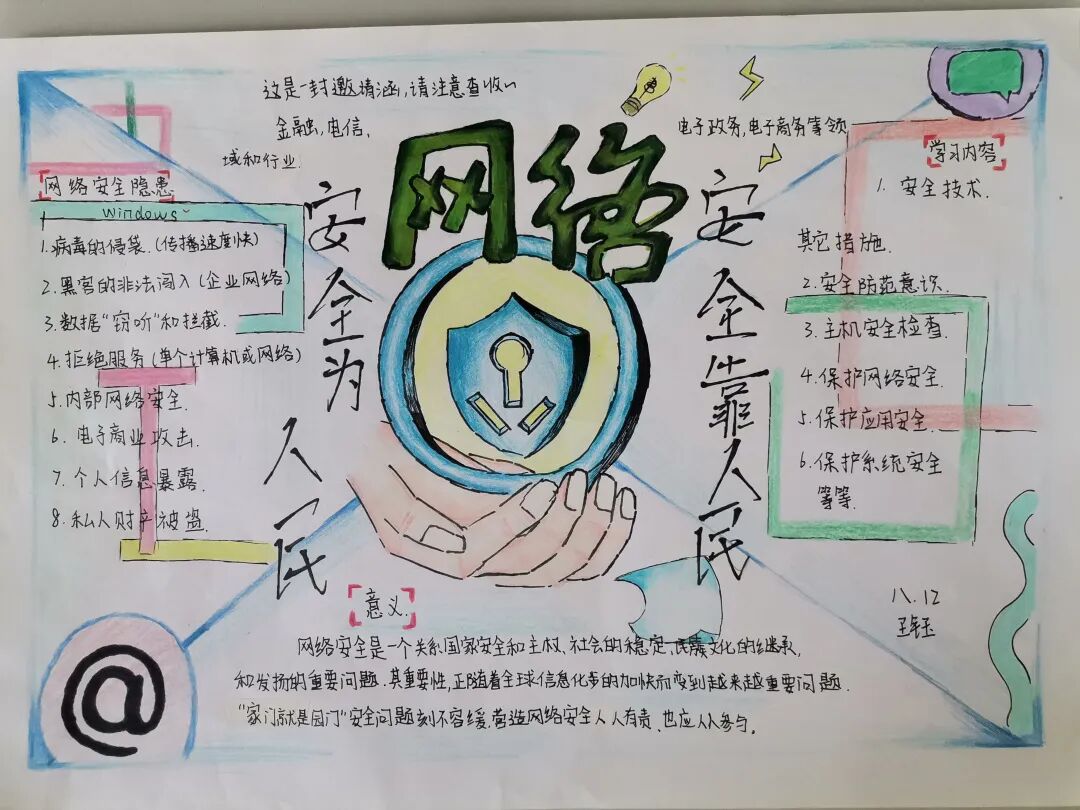 这是一封邀请涵,请注意查收~
金融,电信,
电子政务,电子商务等领
域和行业.
网络
安全为人民
安全靠人民
网络安全隐患
windows
1.病毒的侵袋.(传播速度快)
2.黑客的非法闯入(企业网络)
3.数据"窃听"和拦截.
4.拒绝服务(单个计算机或网络)
5.内部网络安全.
6.电子商业攻击.
7.个人信息暴露.
8.私人财产被盗.
学习内容
1.安全技术.
其它措施.
2.安全防范意识.
3.主机安全检查.
4.保护网络安全.
5.保护应用安全.
6.保护系统安全
等等.
@
意义.
网络安全是一个关系国家安全和主权、社会的稳定、民族文化的继承,
和发扬的重要问题.其重要性,正随着全球信息化步的加快而变到越来越重要问题.
"家门就是国门"安全问题刻不容缓.营造网络安全人人有责.也应人人参与.
八.12